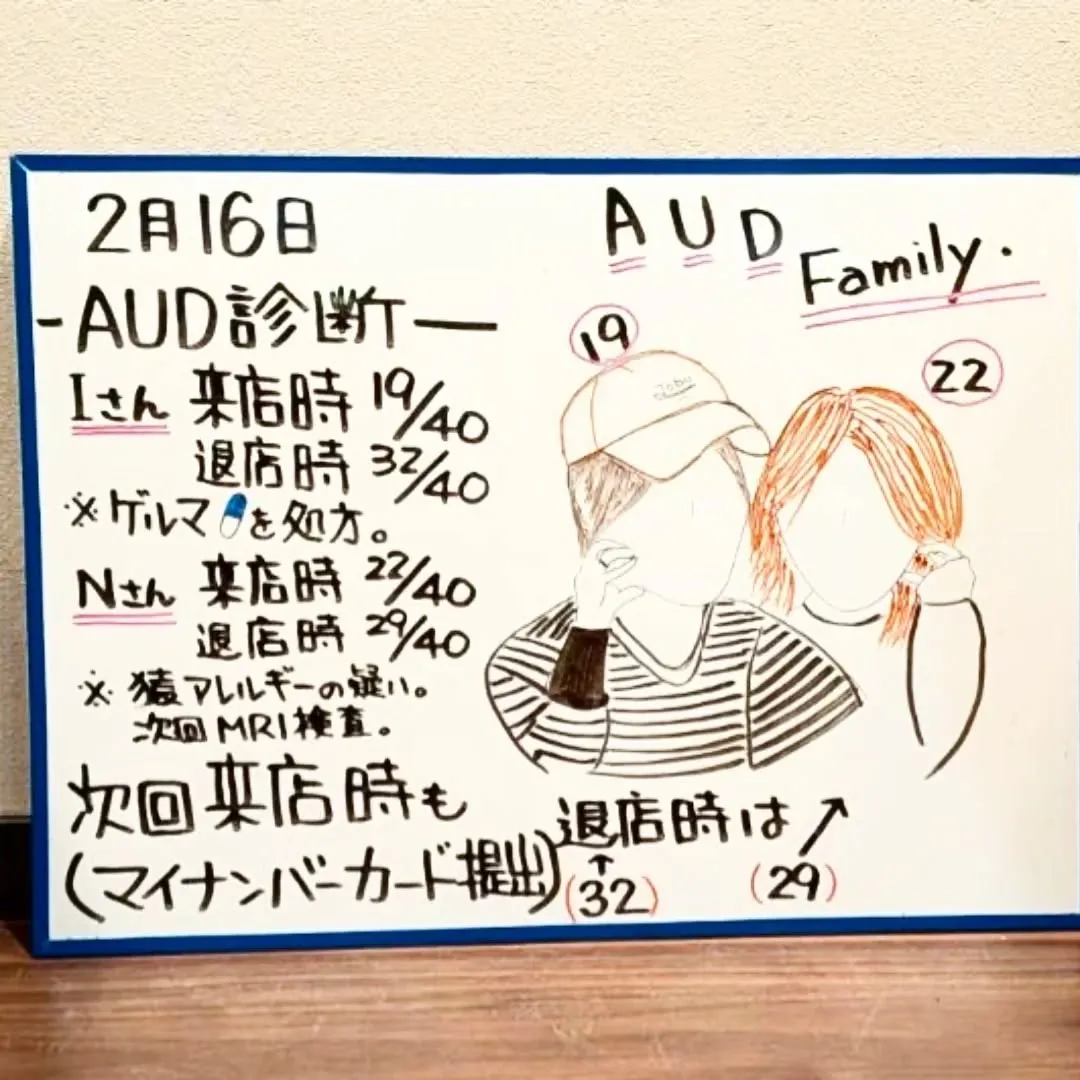 2月16日
-AUD診断-
Iさん 来店時 19/40
退店時 32/40
※ゲルマを処方。
Nさん 来店時 22/40
退店時 29/40
※ 猿アレルギーの疑い。
次回MRI検査。
次回来店時も
(マイナンバーカード提出)
AUD
Family.
19
22
退店時は
(32)
(29)